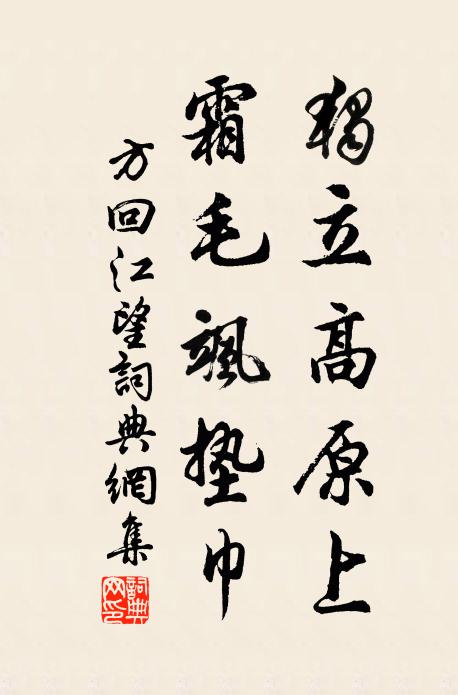 獨立高原上
霜毛颯墊巾
方回江望詞典網集
詞典网印